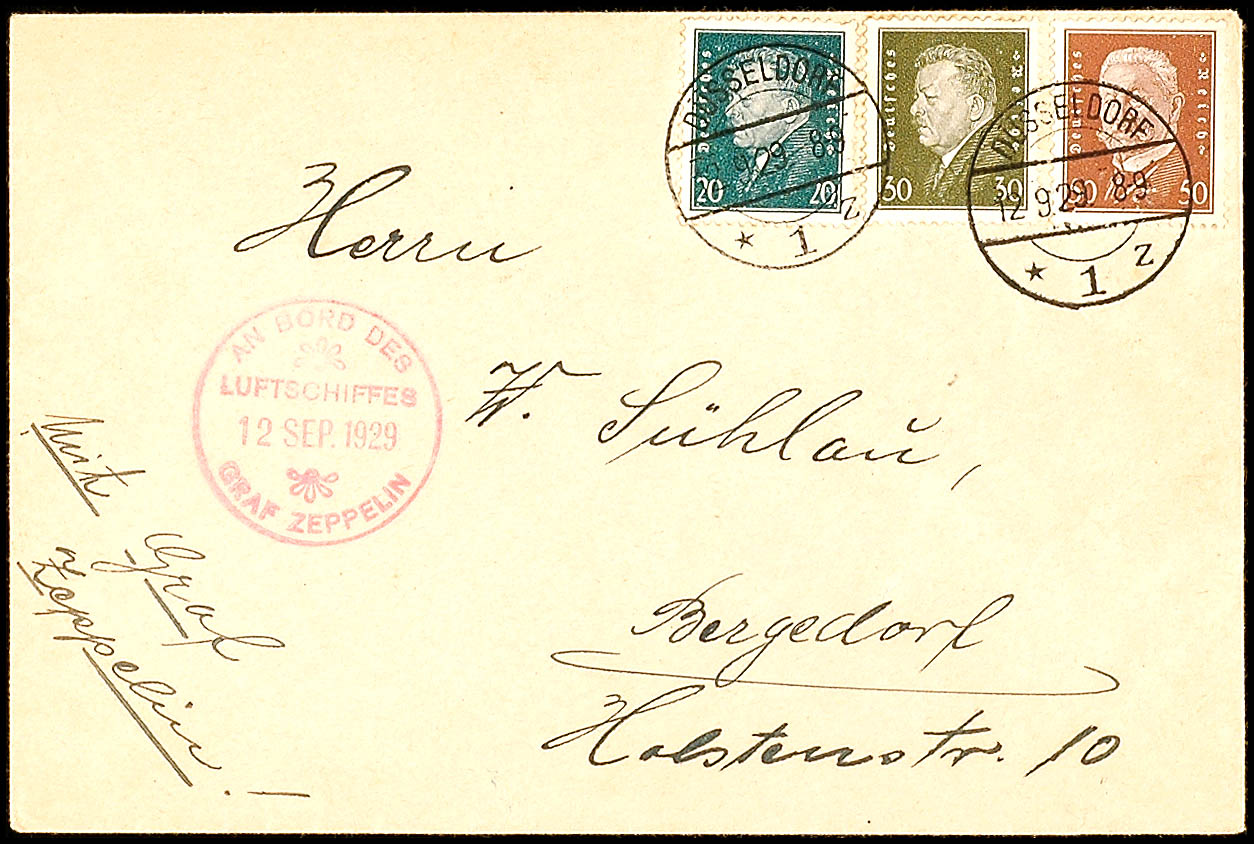 Deutsches Reich
20 20
Deutsches Reich
30 30
Deutsches Reich
50 50
DÜSSELDORF
9.29. 8-9
* 1 z
DÜSSELDORF
12.9.29. 8-9
* 1 z
Herrn
AN BORD DES
LUFTSCHIFFES
12 SEP. 1929
GRAF ZEPPELIN
W. Sühlau,
Mit
Graf
Zeppelin!
Bergedorf
Holstenstr. 10